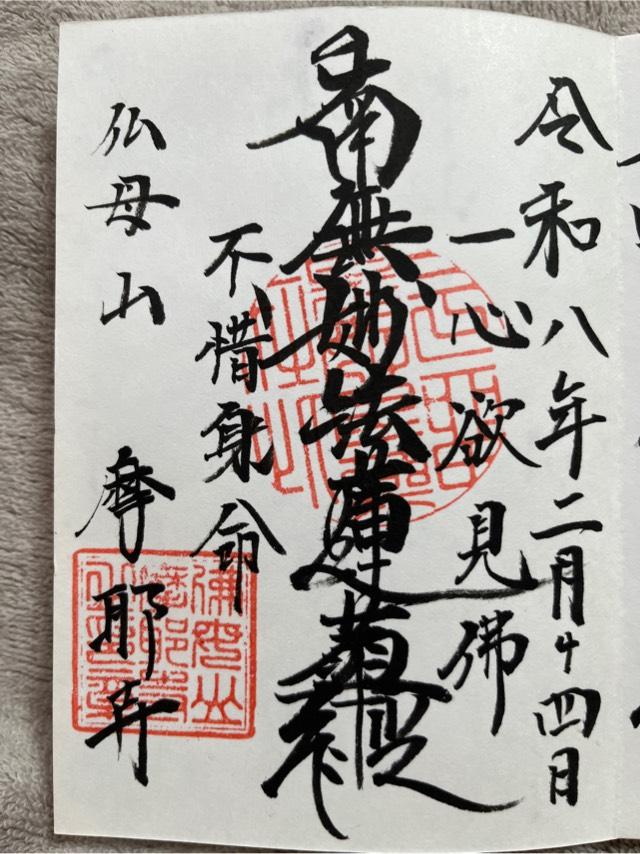 令和八年二月十四日
一心欲見佛
南無妙法蓮華経
不惜身命
仏母山 摩耶寺
佛母山
摩耶寺